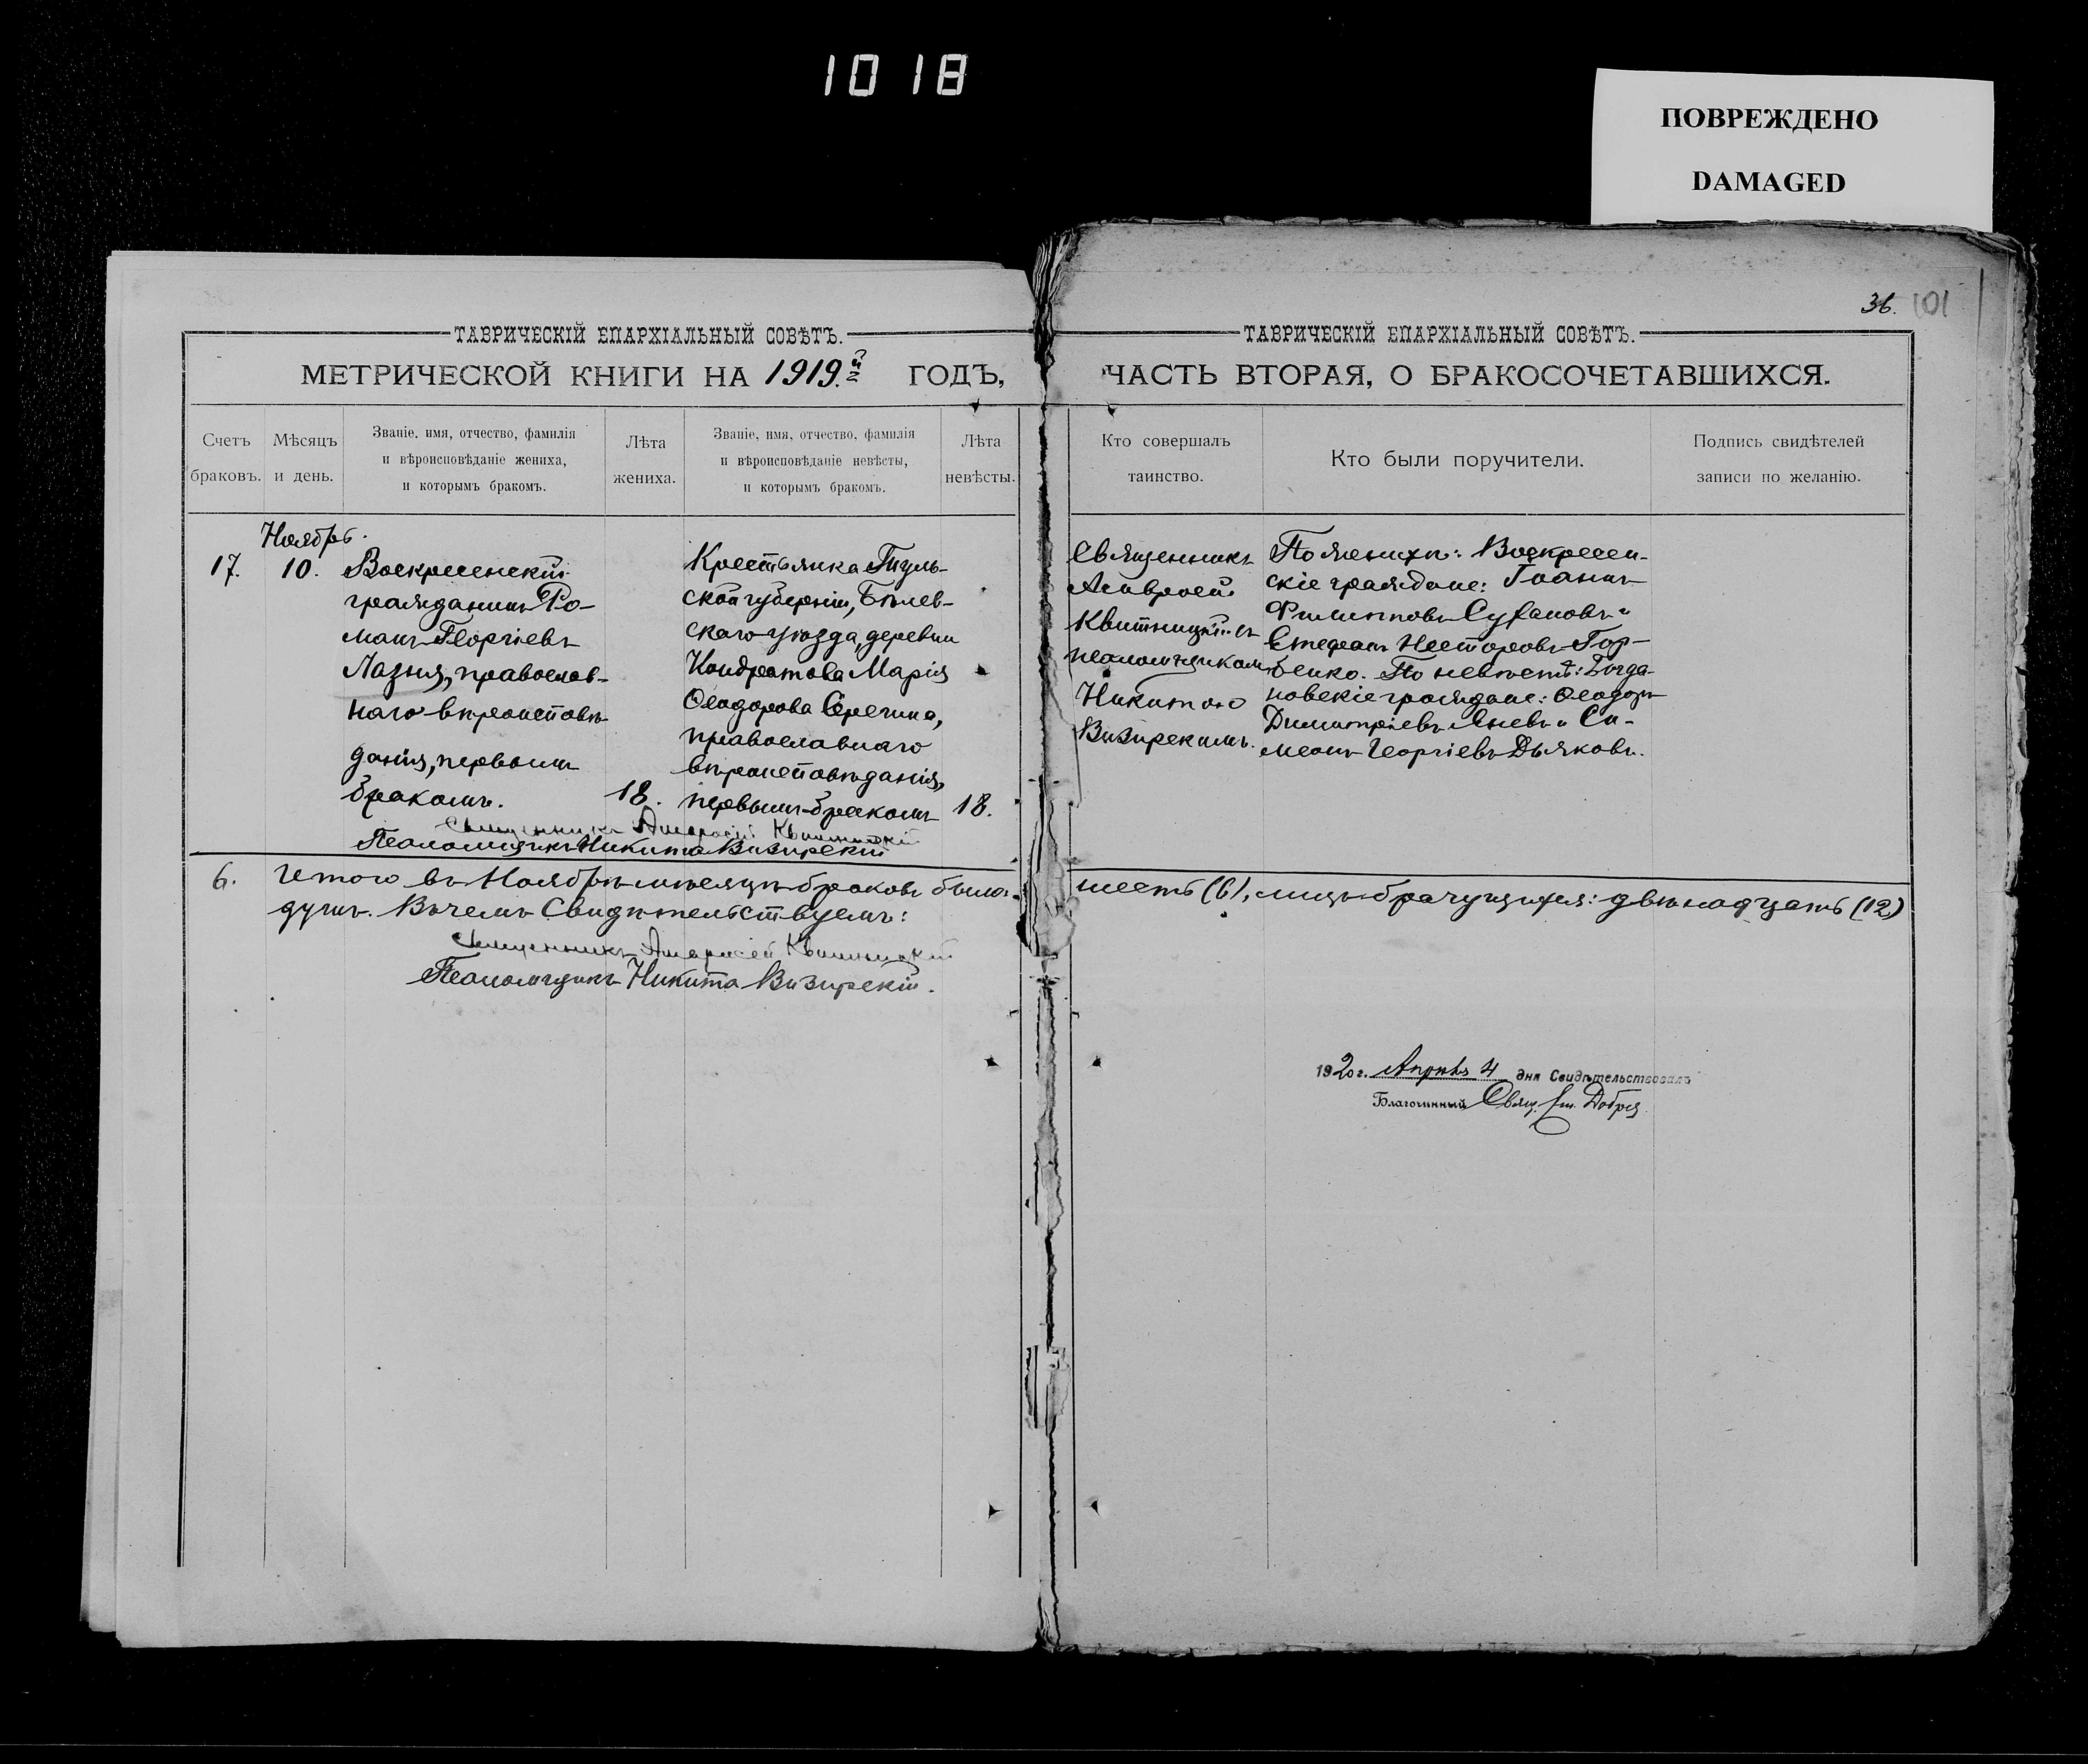 1018
ПОВРЕЖДЕНО
DAMAGED
36. 101
ТАВРИЧЕСКІЙ ЕПАРХІАЛЬНЫЙ СОВѢТЪ.
МЕТРИЧЕСКОЙ КНИГИ НА 1919й ГОДЪ,
Счетъ браковъ.
Мѣсяцъ и день.
Званіе, имя, отчество, фамилія
и вѣроисповѣданіе жениха,
и которымъ бракомъ.
Лѣта жениха.
Званіе, имя, отчество, фамилія
и вѣроисповѣданіе невѣсты,
и которымъ бракомъ.
Лѣта невѣсты.
Ноябрь.
17.
10.
Воскресенскій
гражданинъ Ро-
манъ Георгіевъ
Лазня, православ-
наго вѣроисповѣ-
данія, первымъ
бракомъ.
18.
Крестьянка Туль-
ской губерніи, Бѣлев-
скаго уѣзда, деревни
Кондратова Марія
Ѳеодорова Серегина,
православнаго
вѣроисповѣданія,
первымъ бракомъ
18.
Священникъ Амвросій Квитницкій
Псаломщикъ Никита Визирскій
6.
Итого въ Ноябрѣ мѣсяцѣ браковъ было:
душъ. Въ чемъ Свидѣтельствуемъ:
Священникъ Амвросій Квитницкій
Псаломщикъ Никита Визирскій.
ТАВРИЧЕСКІЙ ЕПАРХІАЛЬНЫЙ СОВѢТЪ.
ЧАСТЬ ВТОРАЯ, О БРАКОСОЧЕТАВШИХСЯ.
Кто совершалъ
таинство.
Кто были поручители.
Подпись свидѣтелей
записи по желанію.
Священникъ
Амвросій
Квитницкій съ
псаломщикомъ
Никитою
Визирскимъ.
По женихѣ: Воскресен-
скіе граждане: Іоаннъ
Филипповъ и
Стефанъ Несторовъ Гор-
бенко. По невѣстѣ: Богда-
новскіе граждане: Ѳеодоръ
Димитріевъ Яневъ и Си-
меонъ Георгіевъ Дьяковъ.
шесть (6), лицъ брачущихся: двѣнадцать (12)
1920 г. Апрѣль 4 дня Свидѣтельствовалъ
Благочинный Свящ.